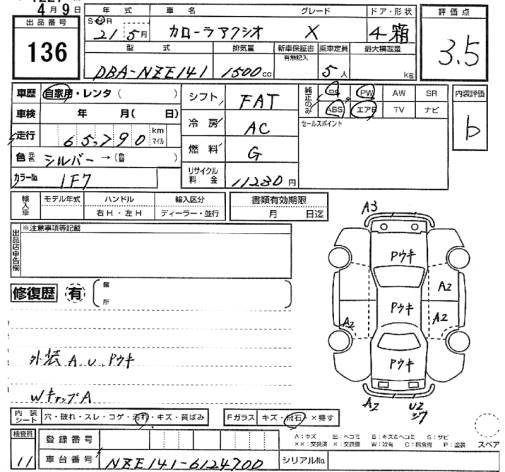 4月9日
出品番号
136
年式 車名 グレード ドア・形状
21年5月 カローラアクシオ X 4 箱
型式 排気量 新車保証書 有無記入 乗車定員 最大積載量
DBA-NZE141 1500cc 5人 kg
評価点
3.5
車歴 自家用・レンタ( )
車検 年 月( 日)
走行 65790 km マイル
色 シルバー→(
カラーNo 1F7
シフト FAT
冷房 AC
燃料 G
リサイクル料金 11230円
純正のみ PS PW AW SR
ABS エアB TV ナビ
セールスポイント
内装評価
b
輸入車 モデル年式 ハンドル 輸入区分
右H・左H ディーラー・並行
書類有効期限
月 日迄
※注意事項等記載
修復歴 有
箇所
外装 A.U.Pウキ
WキャップA
A3
Pウキ
A2
Pウキ
A2
Pウキ
A2
U2
内装シート 穴・破れ・スレ・コゲ・汚れ・キズ・黄ばみ
Fガラス キズ・飛石・×要す
検査員
11
登録番号
車台番号 NZE141-6124700
シリアルNo.
スペア